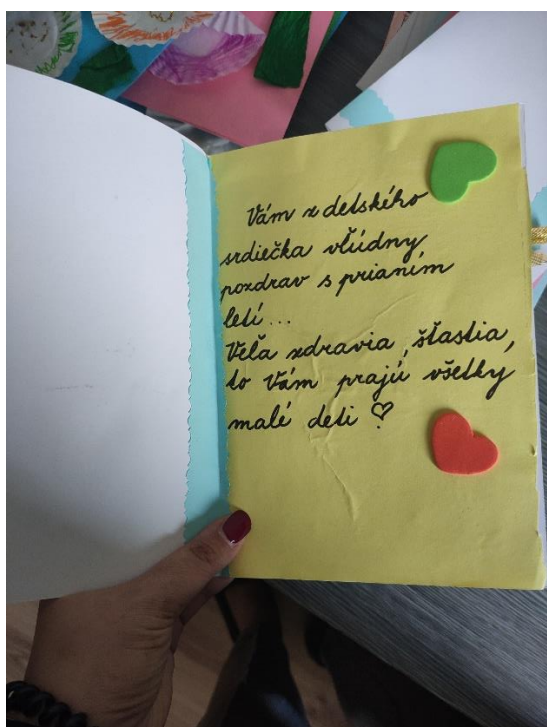 Vám z detského
srdiečka vľúdny
pozdrav s prianím
letí...
Veľa zdravia, šťastia,
to Vám prajú všetky
malé deti ♡